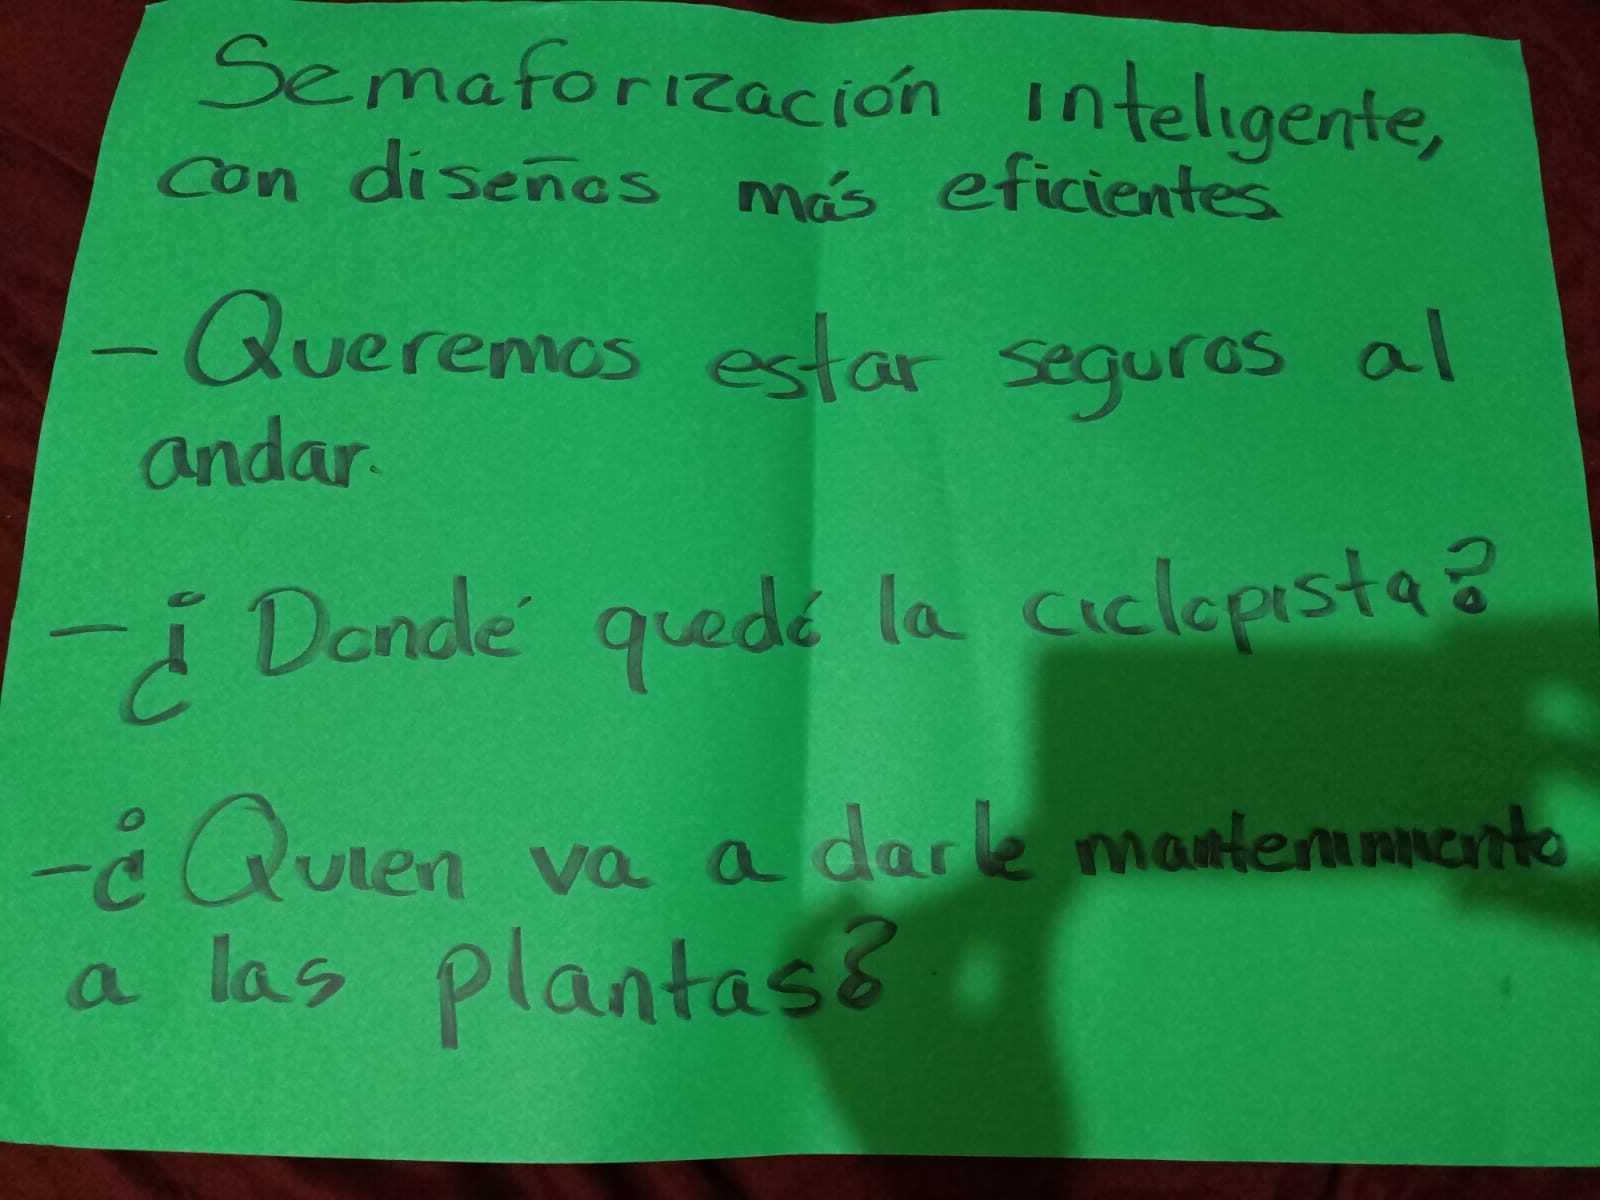 Semaforización inteligente,
con diseños más eficientes.
- Queremos estar seguros al
andar.
- ¿Dondé quedó la ciclopista?
- ¿Quien va a darle mantenimiento
a las plantas?